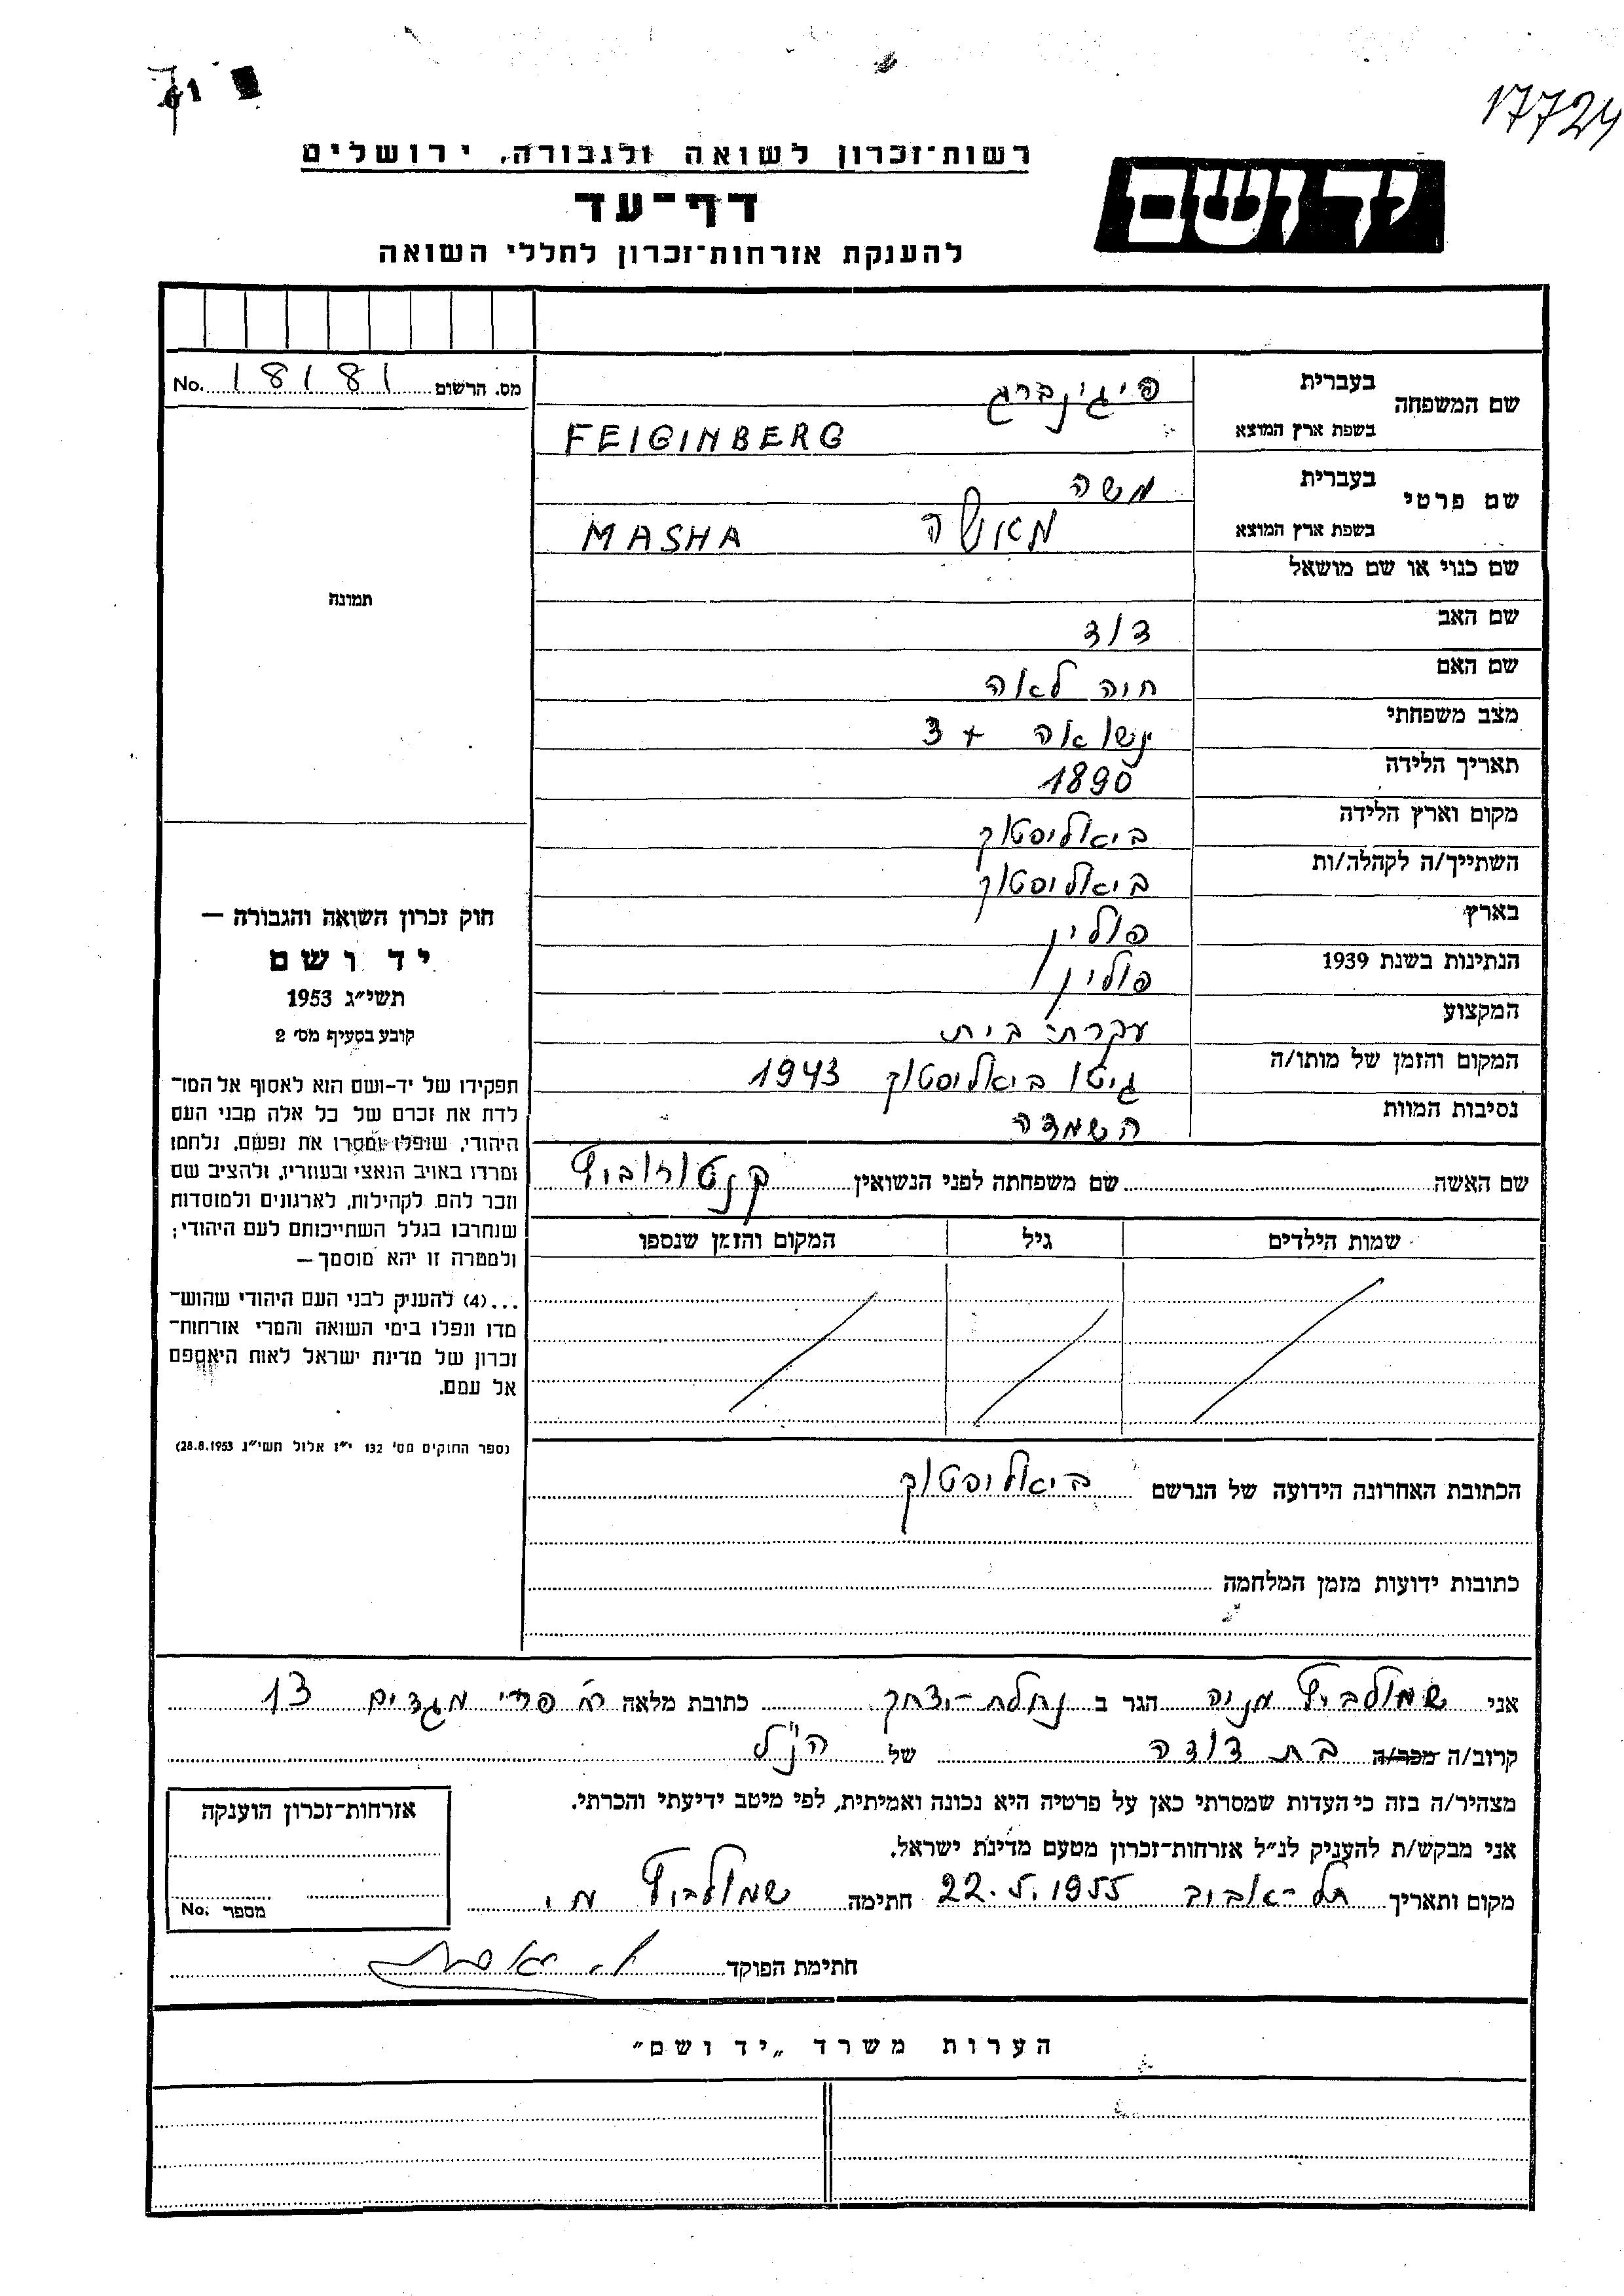 17724
רשות־זכרון לשואה ולגבורה, ירושלים
יד ושם
דף־עד
להענקת אזרחות־זכרון לחללי השואה
מס. הרשום No. 18181
שם המשפחה בעברית פייגינברג
בשפת ארץ המוצא FEIGINBERG
שם פרטי בעברית משה
בשפת ארץ המוצא מאשה MASHA
שם כנוי או שם מושאל
תמונה
שם האב דוד
שם האם חיה לאה
מצב משפחתי נשואה + 3
תאריך הלידה 1890
מקום וארץ הלידה ביאליסטוק
השתייך/ה לקהלה/ות ביאליסטוק
בארץ פולין
הנתינות בשנת 1939 פולין
המקצוע עקרת בית
המקום והזמן של מותו/ה גיטו ביאליסטוק 1943
נסיבות המוות השמדה
שם האשה שם משפחתה לפני הנשואין קנטורוביץ
שמות הילדים גיל המקום והזמן שנספו
חוק זכרון השואה והגבורה —
יד ושם
תשי״ג 1953
קובע בסעיף מס׳ 2
תפקידו של יד-ושם הוא לאסוף אל המו־
לדת את זכרם של כל אלה מבני העם
היהודי, שנפלו ומסרו את נפשם, נלחמו
ומרדו באויב הנאצי ובעוזריו, ולהציב שם
וזכר להם, לקהילות, לארגונים ולמוסדות
שנחרבו בגלל השתייכותם לעם היהודי;
ולמטרה זו יהא מוסמך—
...(4) להעניק לבני העם היהודי שהוש־
מדו ונפלו בימי השואה והמרי אזרחות־
זכרון של מדינת ישראל לאות היאספם
אל עמם.
(ספר החוקים מס׳ 132 י״ז אלול תשי״ג 28.8.1953)
הכתובת האחרונה הידועה של הנרשם ביאליסטוק
כתובות ידועות מזמן המלחמה
אני שמולביץ מניה הגר ב נחלת-יצחק כתובת מלאה רח׳ פרי מגדים 13
קרוב/ה מכר/ה בת דודה של הנ״ל
מצהיר/ה בזה כי העדות שמסרתי כאן על פרטיה היא נכונה ואמיתית, לפי מיטב ידיעתי והכרתי.
אני מבקש/ת להעניק לנ״ל אזרחות־זכרון מטעם מדינת ישראל.
מקום ותאריך תל-אביב 22.5.1955 חתימה שמולביץ מ.
אזרחות־זכרון הוענקה
מספר No.
חתימת הפוקד
הערות משרד „יד ושם״